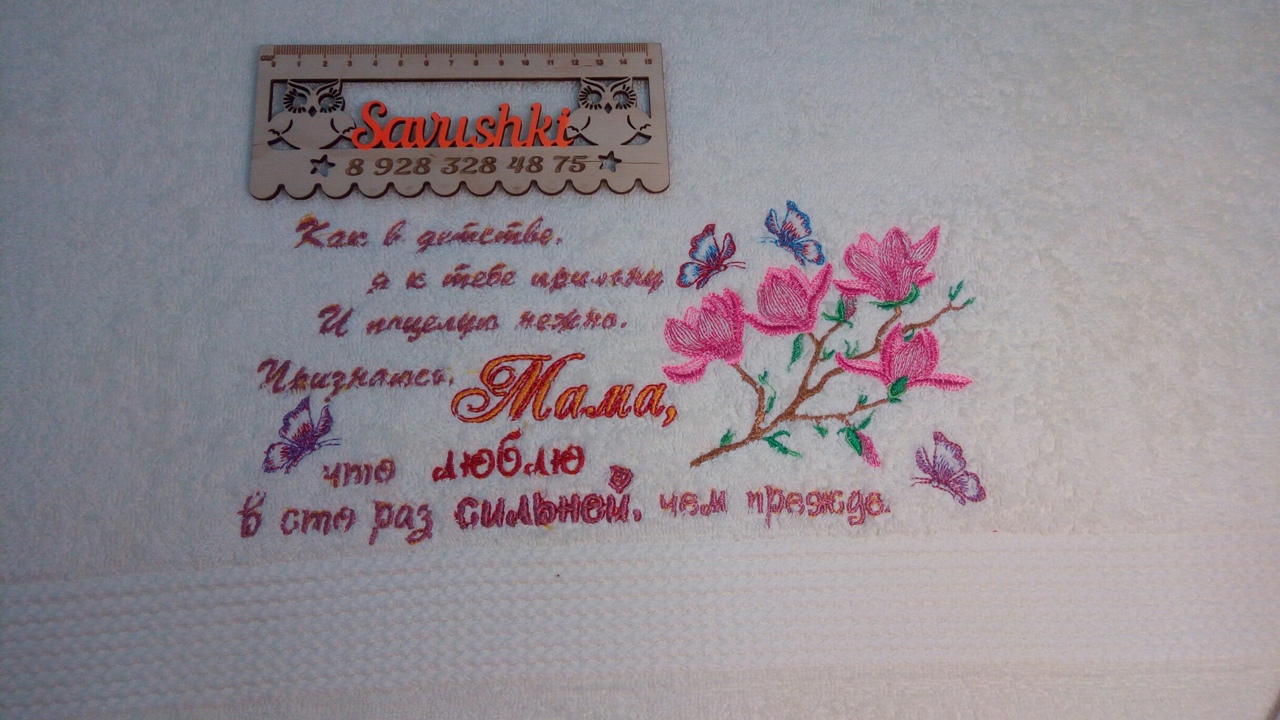 0 1 2 3 4 5 6 7 8 9 10 11 12 13 14 15
Savushki
8 928 328 48 75
Как в детстве,
я к тебе прильну
И поцелую нежно.
Признаюсь, Мама,
что люблю
в сто раз сильней, чем прежде.